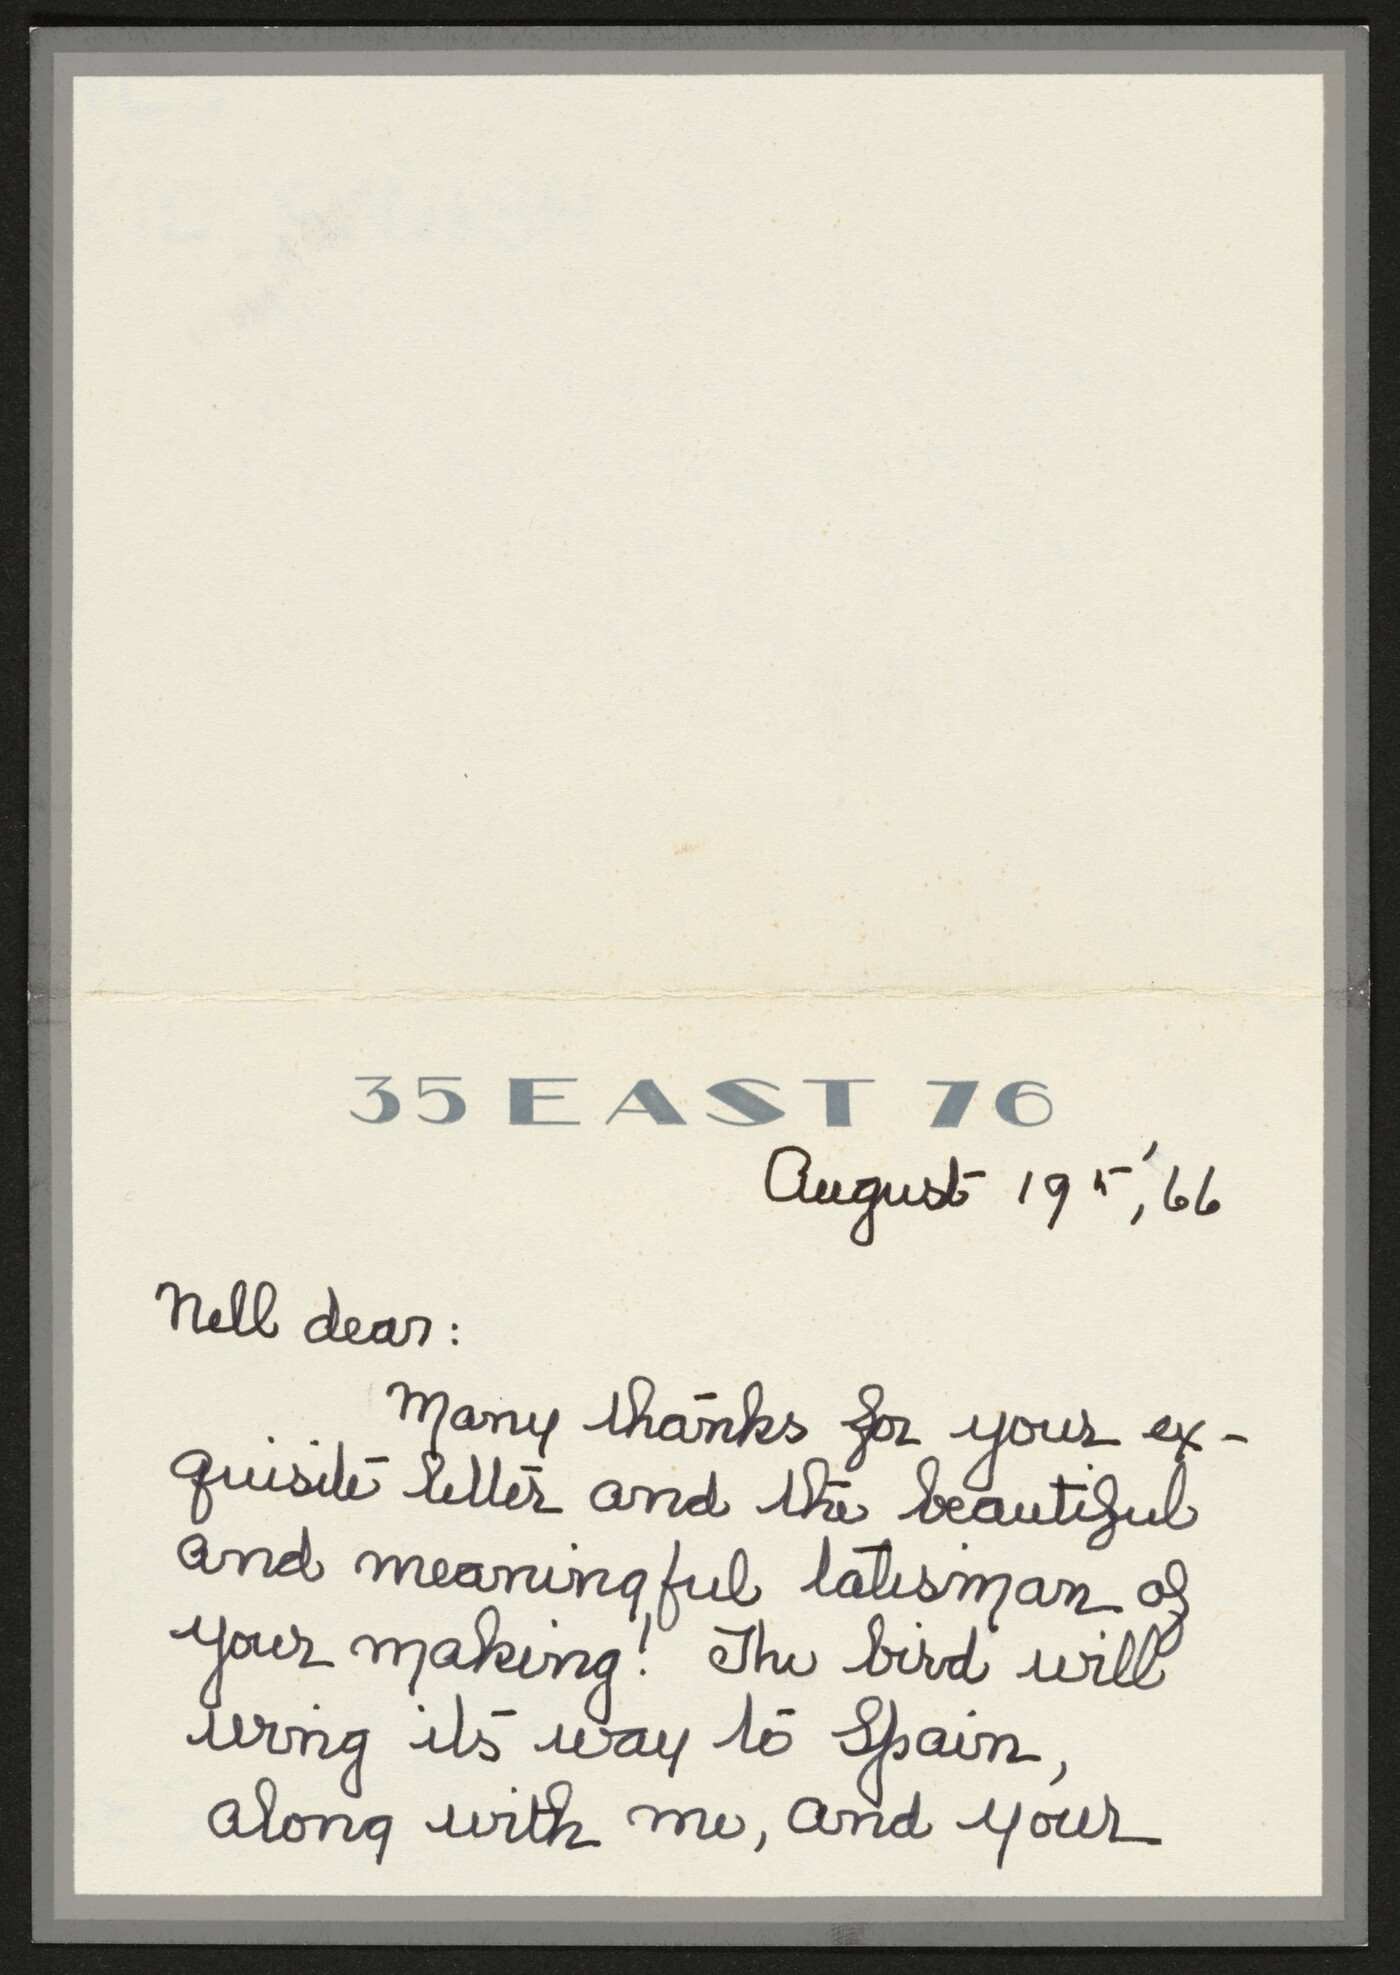 35 EAST 76
August 19th, '66
Nell dear:
Many thanks for your ex-
quisite letter and the beautiful
and meaningful talisman of
your making! The bird will
wing its way to Spain,
along with me, and your